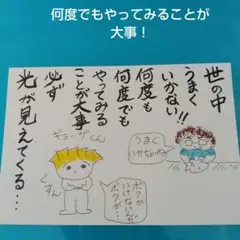 何度でもやってみることが
大事！
世の中
うまく
いかない!!
何度も
何度でも
やってみる
ことが大事
必ず
光が見えてくる...
ギョーザくん
うまく
いかないね
くすん
ボクが
いけないんだ
ボクが...